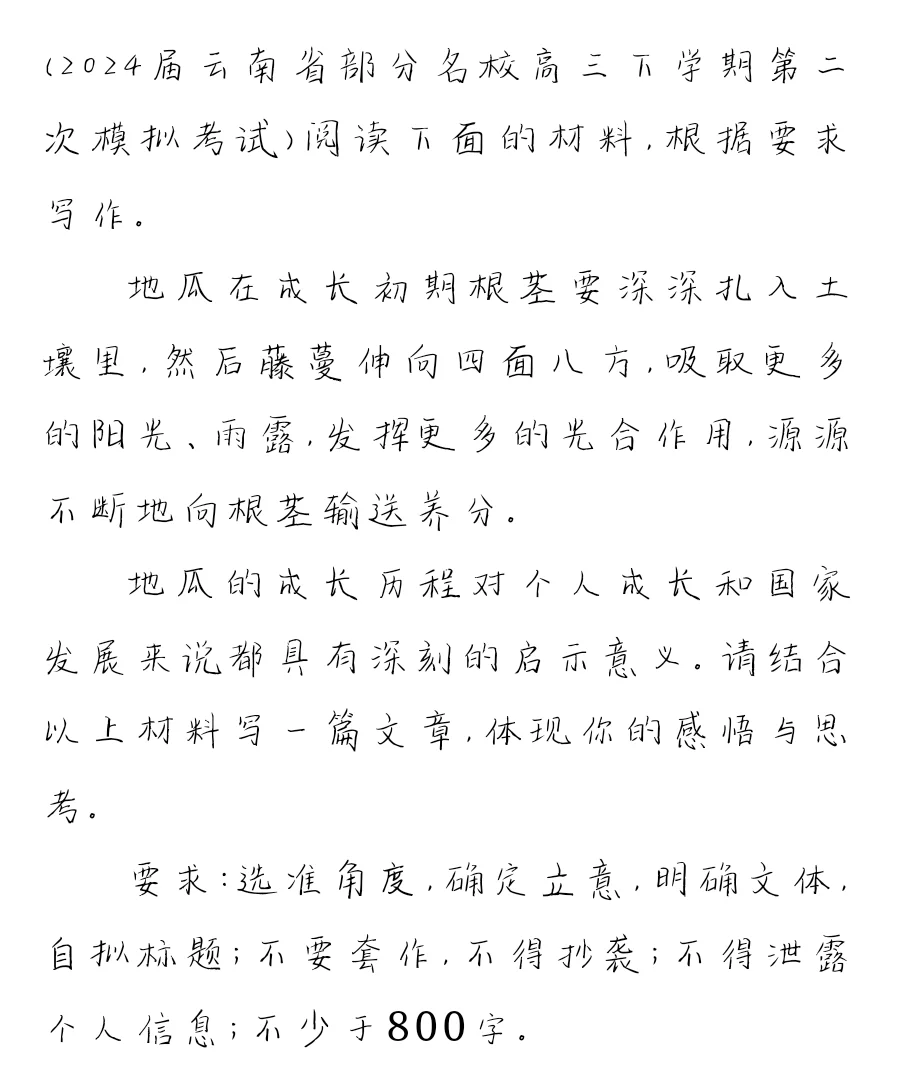 (2024届云南省部分名校高三下学期第二
次模拟考试)阅读下面的材料,根据要求
写作。
地瓜在成长初期根茎要深深扎入土
壤里,然后藤蔓伸向四面八方,吸取更多
的阳光、雨露,发挥更多的光合作用,源源
不断地向根茎输送养分。
地瓜的成长历程对个人成长和国家
发展来说都具有深刻的启示意义。请结合
以上材料写一篇文章,体现你的感悟与思
考。
要求:选准角度,确定立意,明确文体,
自拟标题;不要套作,不得抄袭;不得泄露
个人信息;不少于800字。